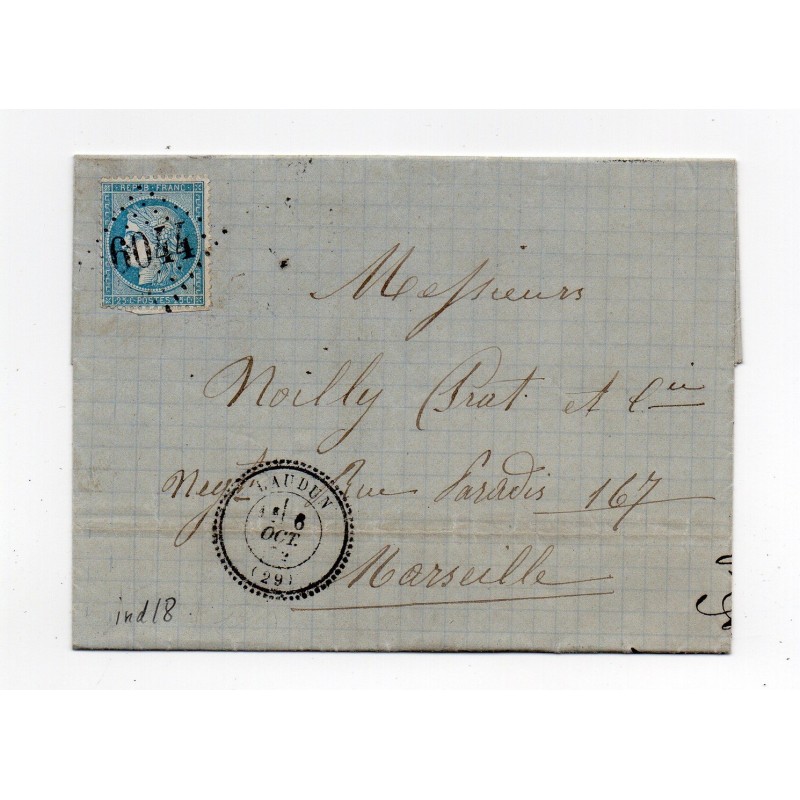 REPUB · FRANC
6044
25·C·POSTES·25·C
Messieurs
Noilly Prat et Cie
Negts Rue Paradis 167
Marseille
LAUDUN
6
OCT.
(29)
ind 18